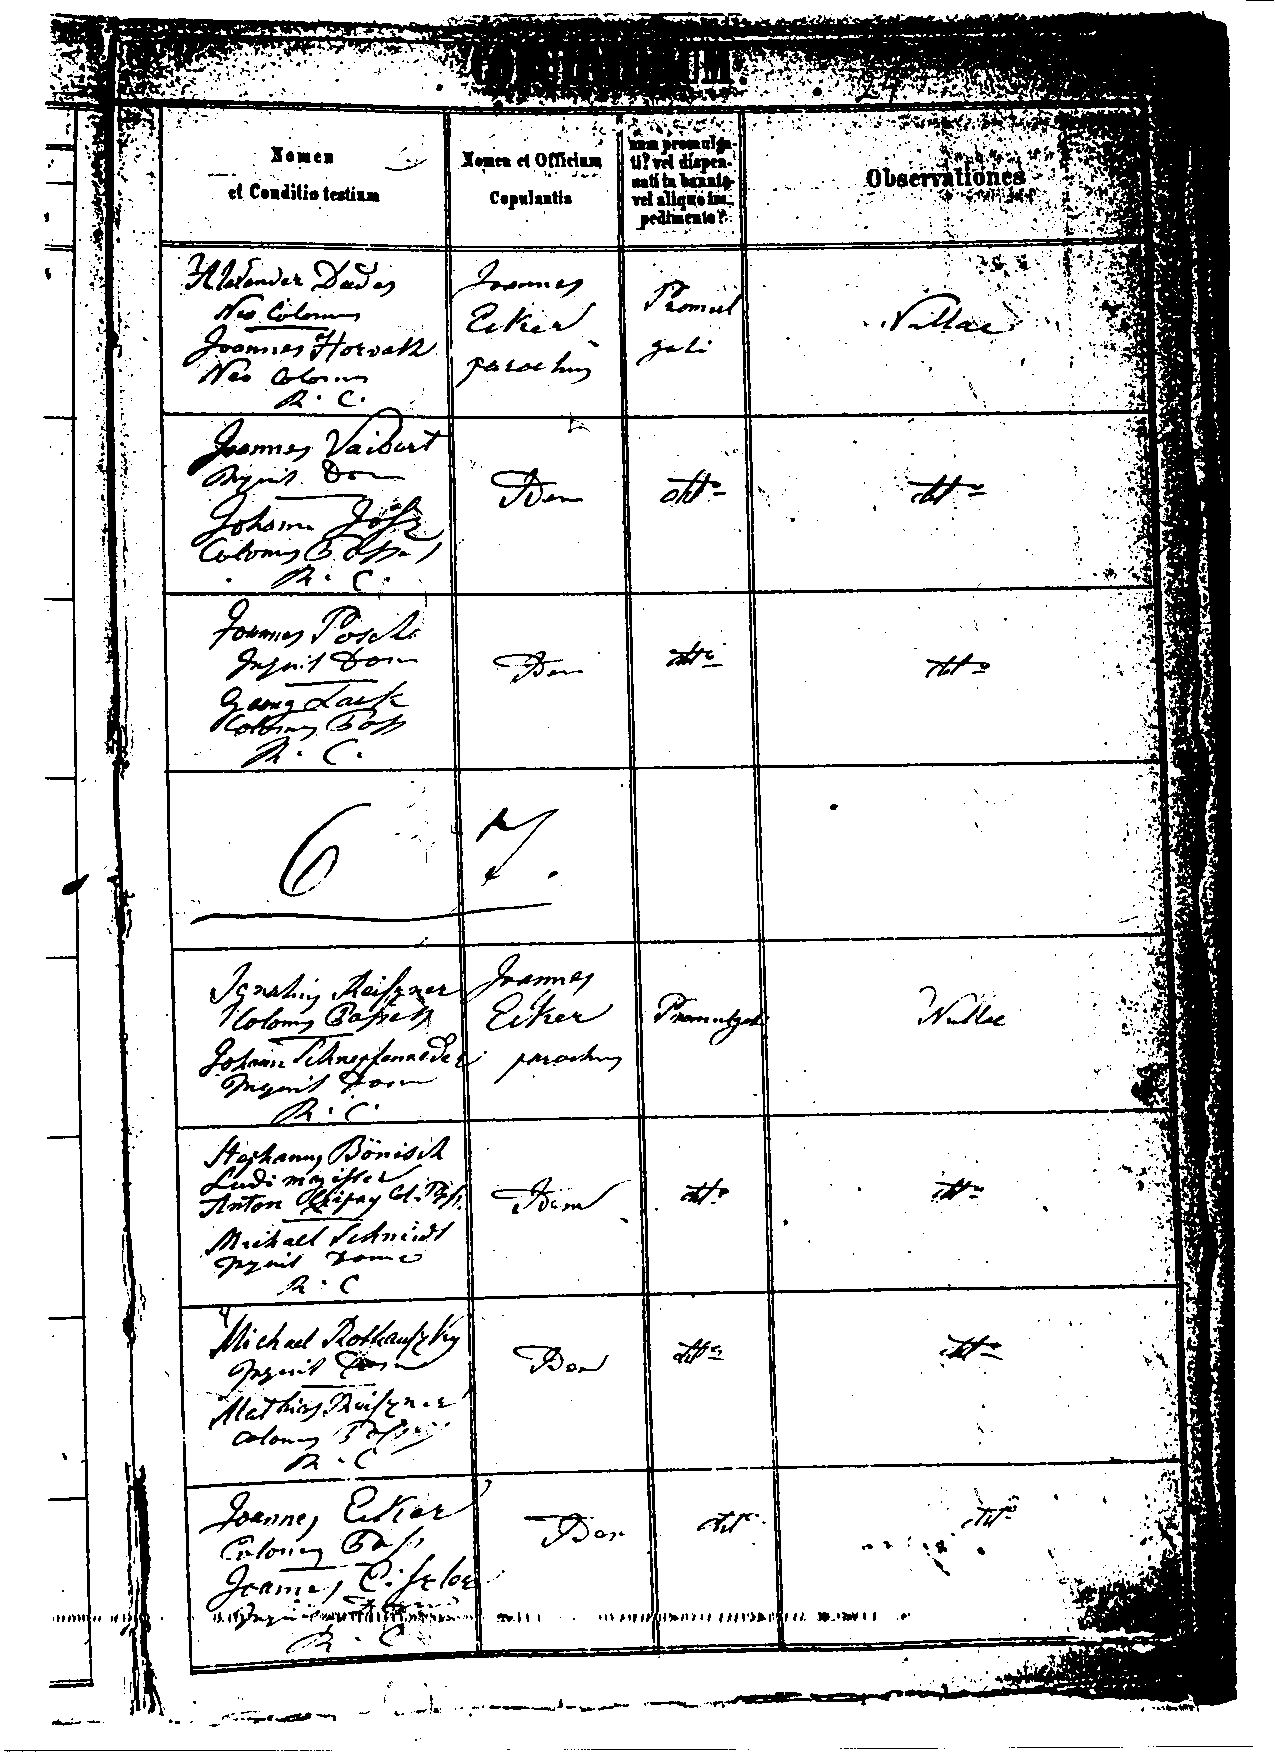 COPULATORUM.
Nomen
et Conditio testium
Nomen et Officium
Copulantis
num promulga-
ti? vel dispen-
sati in bannis
vel aliquo im-
pedimento?
Observationes
Alexander
Neo Colonus
Joannes Horvath
Neo Colonus
R. C.
Joannes
Ecker
parochus
Promul
gati
Nullae
Joannes Vaibert
Inquil. Dom
Johann
Colonus
R. C.
Idem
dtto
dtto
Joannes Posch
Inquil Dom
Georg
Colonus Poss
R. C.
Idem
dtto
dtto
6 7.
Ignatius Reiszner
Colonus
Johann
Inquil Dom
R. C.
Joannes
Ecker
parochus
Promulgati
Nullae
Stephanus Bönisch
Ludi magister
Anton
Michael Schmidt
Inquil Dom
R. C
Idem
dtto
dtto
Michael
Inquil Dom
Mathias Reiszner
Colonus
R. C
Idem
dtto
dtto
Joannes Ecker
Colonus Poss
Joannes
R. C
Idem
dtto
dtto